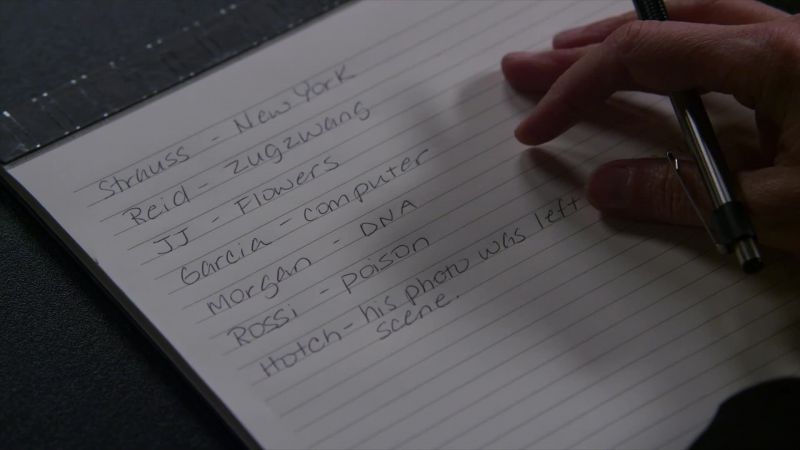 Strauss - New York
Reid - zugzwang
JJ - Flowers
Garcia - computer
Morgan - DNA
Rossi - poison
Hotch - his photo was left
scene.